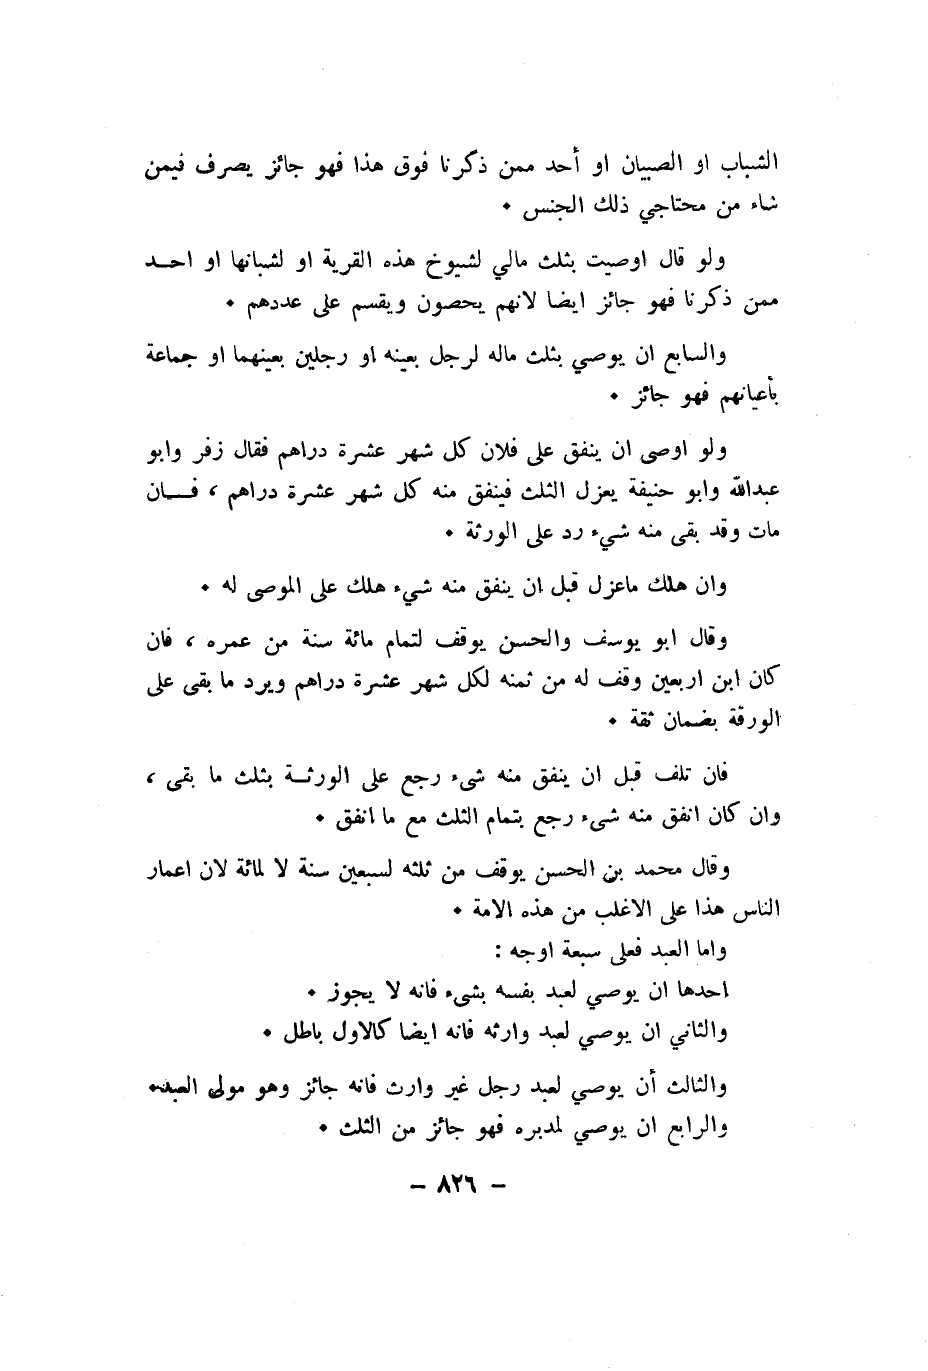 الشباب او الصبيان او أحد ممن ذكرنا فوق هذا فهو جائز يصرف فيمن
شاء من محتاجي ذلك الجنس ٠
ولو قال اوصيت بثلث مالي لشيوخ هذه القرية او لشبانها او احـد
ممن ذكرنا فهو جائز ايضا لانهم يحصون ويقسم على عددهم ٠
والسابع ان يوصي بثلث ماله لرجل بعينه او رجلين بعينهما او جماعة
بأعيانهم فهو جائز ٠
ولو اوصى ان ينفق على فلان كل شهر عشرة دراهم فقال زفر وابو
عبدالله وابو حنيفة يعزل الثلث فينفق منه كل شهر عشرة دراهم ، فــان
مات وقد بقى منه شيء رد على الورثة ٠
وان هلك ماعزل قبل ان ينفق منه شيء هلك على الموصى له ٠
وقال ابو يوسف والحسن يوقف لتمام مائة سنة من عمره ، فان
كان ابن اربعين وقف له من ثمنه لكل شهر عشرة دراهم ويرد ما بقى على
الورقة بضمان ثقة ٠
فان تلف قبل ان ينفق منه شىء رجع على الورثــة بثلث ما بقى ،
وان كان انفق منه شىء رجع بتمام الثلث مع ما انفق ٠
وقال محمد بن الحسن يوقف من ثلثه لسبعين سنة لا لمائة لان اعمار
الناس هذا على الاغلب من هذه الامة ٠
واما العبد فعلى سبعة اوجه :
احدها ان يوصي لعبد بفسه بشىء فانه لا يجوز ٠
والثاني ان يوصي لعبد وارثه فانه ايضا كالاول باطل ٠
والثالث أن يوصي لعبد رجل غير وارث فانه جائز وهو مولى العبد٠
والرابع ان يوصي لمدبره فهو جائز من الثلث ٠
– ٨٢٦ –